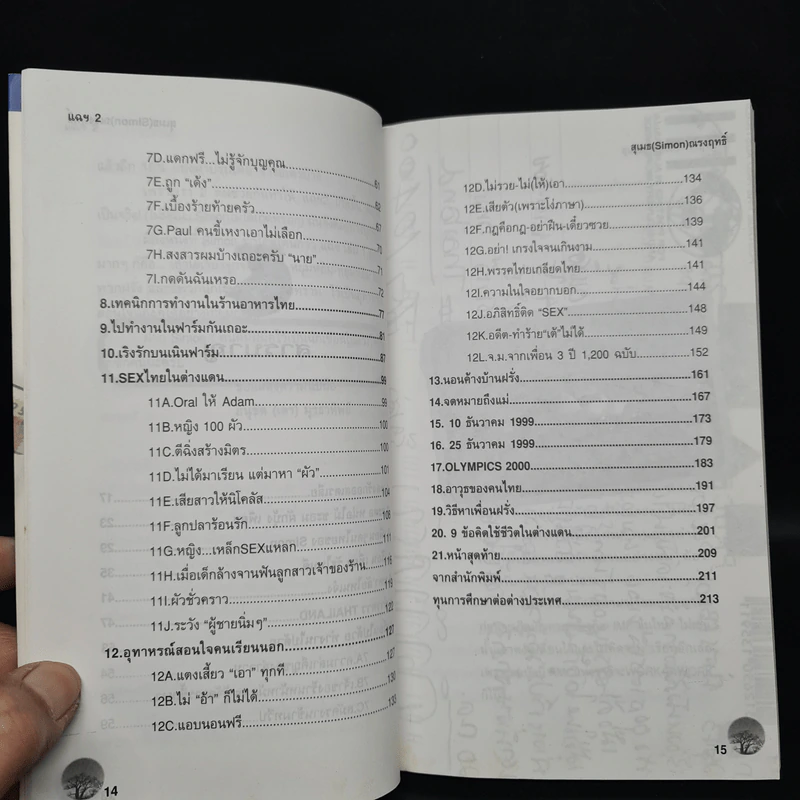 แฉฯ 2
7D.แดกฟรี...ไม่รู้จักบุญคุณ.....61
7E.ถูก “เด้ง”.....62
7F.เบื้องร้ายท้ายครัว.....67
7G.Paul คนขี้เหงาเอาไม่เลือก.....70
7H.สงสารผมบ้างเถอะครับ “นาย”.....71
7I.กดดันฉันเหรอ.....72
8.เทคนิกการทำงานในร้านอาหารไทย.....77
9.ไปทำงานในฟาร์มกันเถอะ.....81
10.เริงรักบนเนินฟาร์ม.....87
11.SEXไทยในต่างแดน.....99
11A.Oral ให้ Adam.....99
11B.หญิง 100 ผัว.....100
11C.ตีฉิ่งสร้างมิตร.....100
11D.ไม่ได้มาเรียน แต่มาหา “ผัว”.....101
11E.เสียสาวให้นิโคลัส.....104
11F.ลูกปลาร้อนรัก.....106
11G.หญิง...เหล็กSEXแหลก.....111
11H.เมื่อเด็กล้างจานฟันลูกสาวเจ้าของร้าน.....116
11I.ผัวชั่วคราว.....119
11J.ระวัง “ผู้ชายนิ่มๆ”.....122
12.อุทาหรณ์สอนใจคนเรียนนอก.....127
12A.แตงเสี้ยว “เอา” ทุกที.....127
12B.ไม่ “อ้า” ก็ไม่ได้.....130
12C.แอบนอนฟรี.....133
14
สุเมธ(Simon)ณรงฤทธิ์
12D.ไม่รวย-ไม่(ให้)เอา.....134
12E.เสียตัว(เพราะโง่ภาษา).....136
12F.กฎคือกฎ-อย่าฝืน-เดี๋ยวซวย.....139
12G.อย่า! เกรงใจจนเกินงาม.....141
12H.พรรคไทยเกลียดไทย.....141
12I.ความในใจอยากบอก.....144
12J.อภิสิทธิ์ติด “SEX”.....148
12K.อดีต-ทำร้าย“เต้”ไม่ได้.....149
12L.จ.ม.จากเพื่อน 3 ปี 1,200 ฉบับ.....152
13.นอนค้างบ้านฝรั่ง.....161
14.จดหมายถึงแม่.....167
15. 10 ธันวาคม 1999.....173
16. 25 ธันวาคม 1999.....179
17.OLYMPICS 2000.....183
18.อาวุธของคนไทย.....191
19.วิธีหาเพื่อนฝรั่ง.....197
20. 9 ข้อคิดใช้ชีวิตในต่างแดน.....201
21.หน้าสุดท้าย.....209
จากสำนักพิมพ์.....211
ทุนการศึกษาต่อต่างประเทศ.....213
15